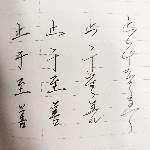 止于至善
止于至善
止于至善
止于至善